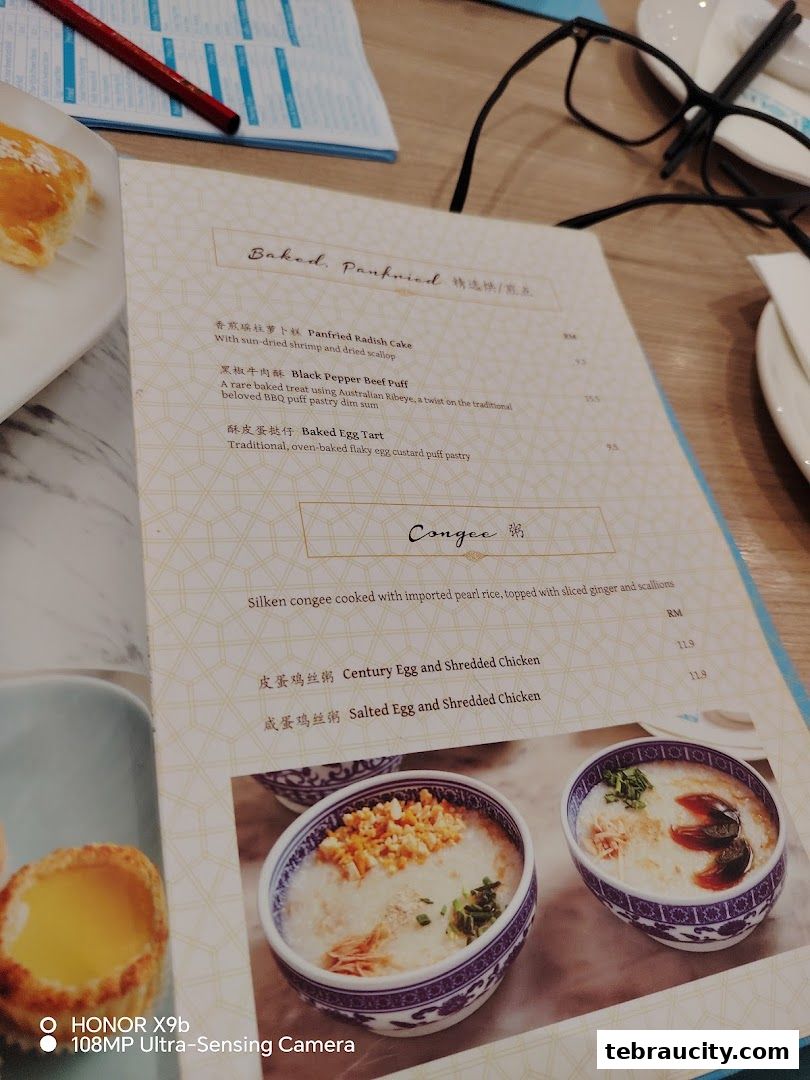 Baked, Panfried 精选烘/煎点
RM
香煎瑶柱萝卜糕 Panfried Radish Cake
9.5
With sun-dried shrimp and dried scallop
黑椒牛肉酥 Black Pepper Beef Puff
A rare baked treat using Australian Ribeye, a twist on the traditional
beloved BBQ puff pastry dim sum
酥皮蛋挞仔 Baked Egg Tart
9.5
Traditional, oven-baked flaky egg custard puff pastry
Congee 粥
Silken congee cooked with imported pearl rice, topped with sliced ginger and scallions
RM
皮蛋鸡丝粥 Century Egg and Shredded Chicken
11.9
咸蛋鸡丝粥 Salted Egg and Shredded Chicken
11.9
HONOR X9b
108MP Ultra-Sensing Camera
tebraucity.com